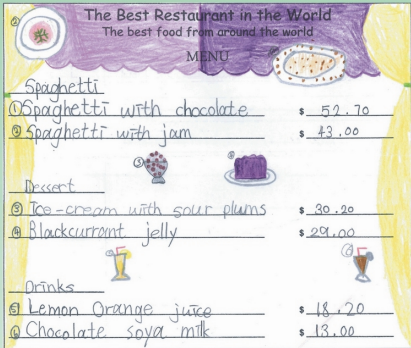 The Best Restaurant in the World
The best food from around the world
MENU
Spaghetti
① Spaghetti with chocolate $ 52.70
② Spaghetti with jam $ 43.00
Dessert
③ Ice-cream with sour plums $ 30.20
④ Blackcurrant jelly $ 29.00
Drinks
⑤ Lemon Orange juice $ 18.20
⑥ Chocolate soya milk $ 13.00